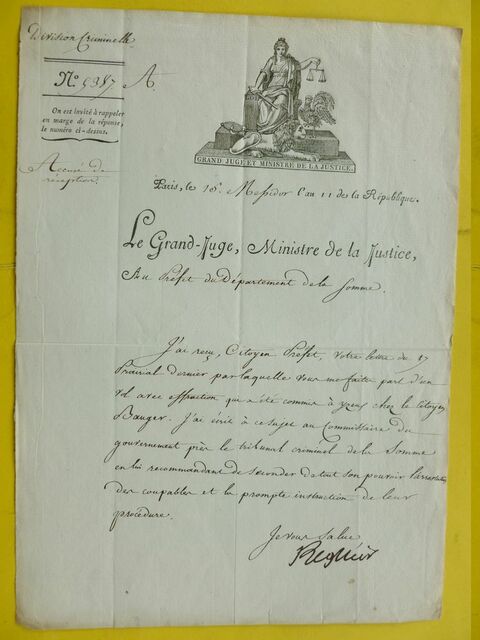 Division Criminelle
N.o 5987 A.
On est invité à rappeler
en marge de la réponse,
le numéro ci-dessus.
Accusé de
réception.
GRAND JUGE ET MINISTRE DE LA JUSTICE.
Paris, le 18e. Messidor l'an 11 de la République.
Le Grand-Juge, Ministre de la Justice,
Au Préfet du Département de la Somme.
J'ai reçu, Citoyen Préfet, votre lettre du 17
Prairial dernier par laquelle vous me faite part d'un
vol avec effraction qui a été commis à chez le Citoyen
Bauger. J'ai écrit à ce sujet au Commissaire du
gouvernement près le tribunal criminel de la Somme
en lui recommandant de seconder de tout son pouvoir l'arrestation
des coupables et la prompte instruction de leur
procédure.
Je vous salue
Regnier